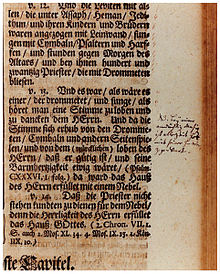 v. 12. Und die Leviten mit al-
len / die unter Assaph / Heman / Jedi-
thun / und ihren Kindern und Brüdern
waren angezogen mit Leinwand / sun-
gen mit Cymbaln / Psaltern und Harf-
fen / und stunden gegen Morgen des
Altars / und bey ihnen hundert und
zwanzig Priester / die mit Drommeten
bliesen.
v. 13. Und es war / als wäre es
einer der drommetete / und sünge / als
höret man eine Stimme zu loben
zu dancken dem HErrn. Und da die
Stimm sich erhub von den Dromme-
ten / Cymbaln und andern Seitenspie-
len / und von dem loben des
HErrn / daß er gütig ist / und seine
Barmhertzigkeit ewig wäret
CXXXVI, da ward das Hauß
des HErrn erfüllet mit einem Nebel.
v. 14. Daß die Priester nicht
stehen kundten zu dienen für dem Nebel /
denn die Herrligkeit des HErrn erfüllet
das Hauß Gottes. (2. Chron. VII.
2. Mos. XL.
NB.
ste Capitel.